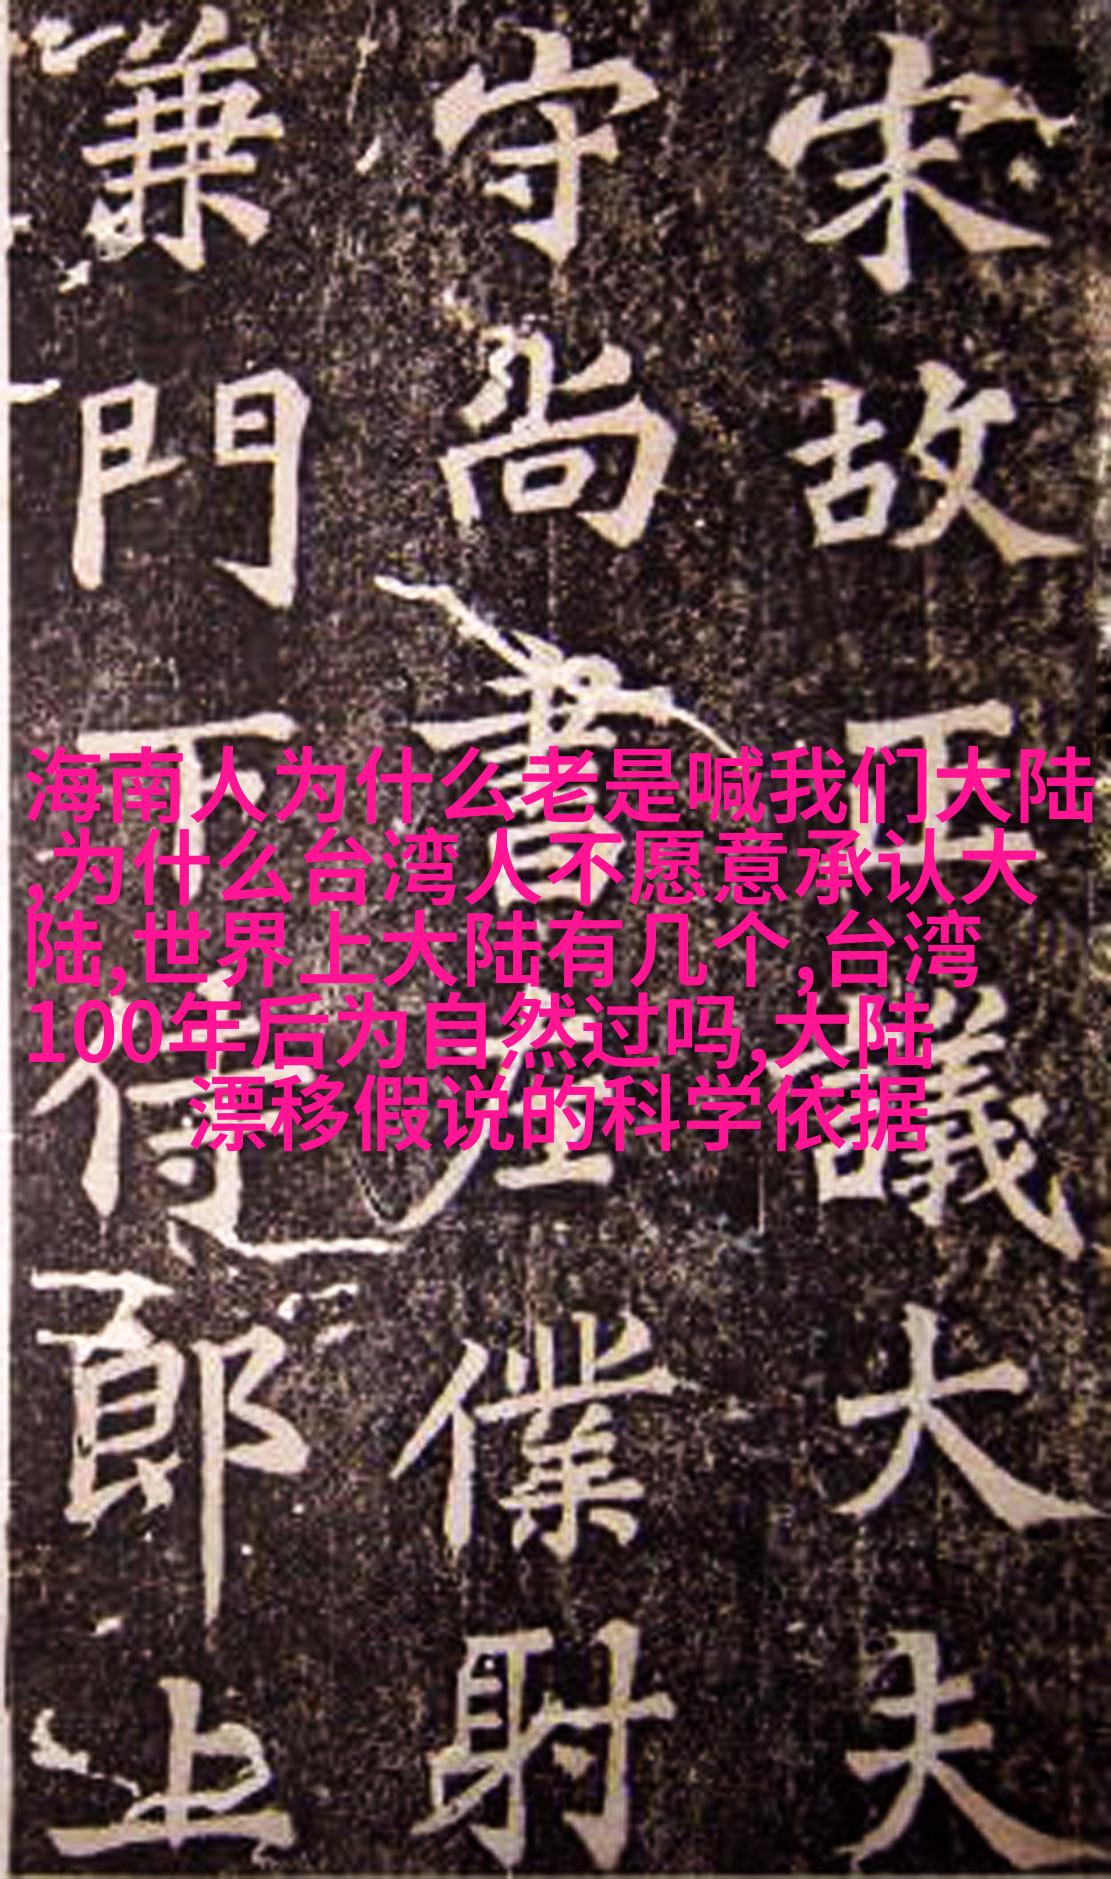 宋故正議大夫
守尚書左僕射
兼門下侍郎上
海南人为什么老是喊我们大陆
,为什么台湾人不愿意承认大
陆,世界上大陆有几个,台湾
100年后为自然过吗,大陆
漂移假说的科学依据